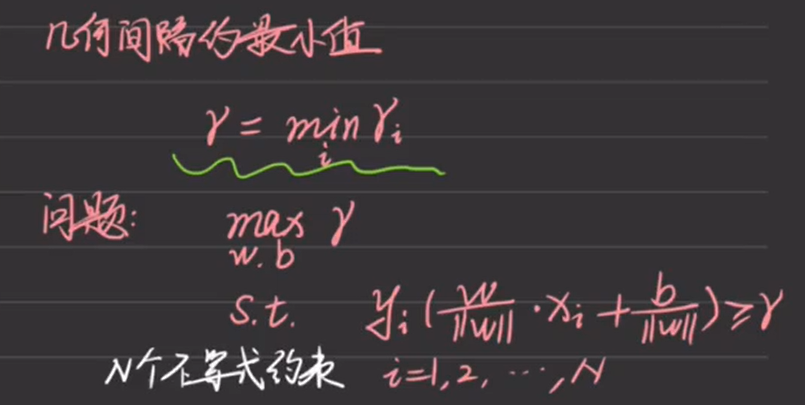 几何间隔的最小值
γ = min γᵢ
i
问题:
max γ
w.b
s.t. yᵢ(w/‖w‖ · xᵢ + b/‖w‖) ≥ γ
N个不等式约束 i=1,2,⋯,N